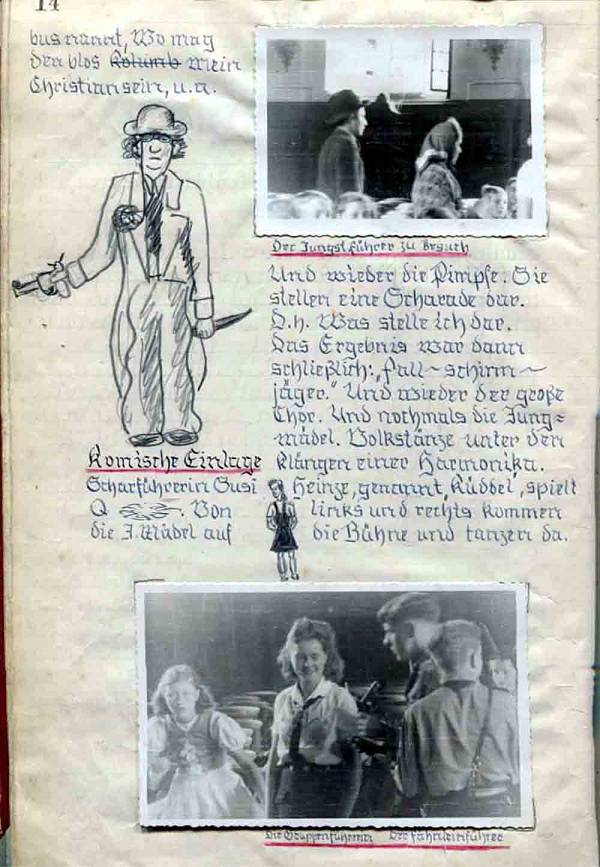 14
busnannt, Wo mag
den blos Kolumb mein
Christiansein, u.a.
Der Jungstführer zu Besuch
Und wieder die Pimpfe. Sie
stellen eine Scharade dar.
D.h. Was stelle ich dar.
Das Ergebnis war dann
schließlich: „Fall-schirm-
jäger." Und wieder der große
Chor. Und nochmals die Jung-
mädel. Volkstänze unter den
Klängen einer Harmonika.
Komische Einlage
Scharführerin Susi Heinze, genannt „Rüddel", spielt
Von links und rechts kommen
die J.Mädel auf die Bühne und tanzen da.
Die Gruppenführerin Der Fähnleinführer